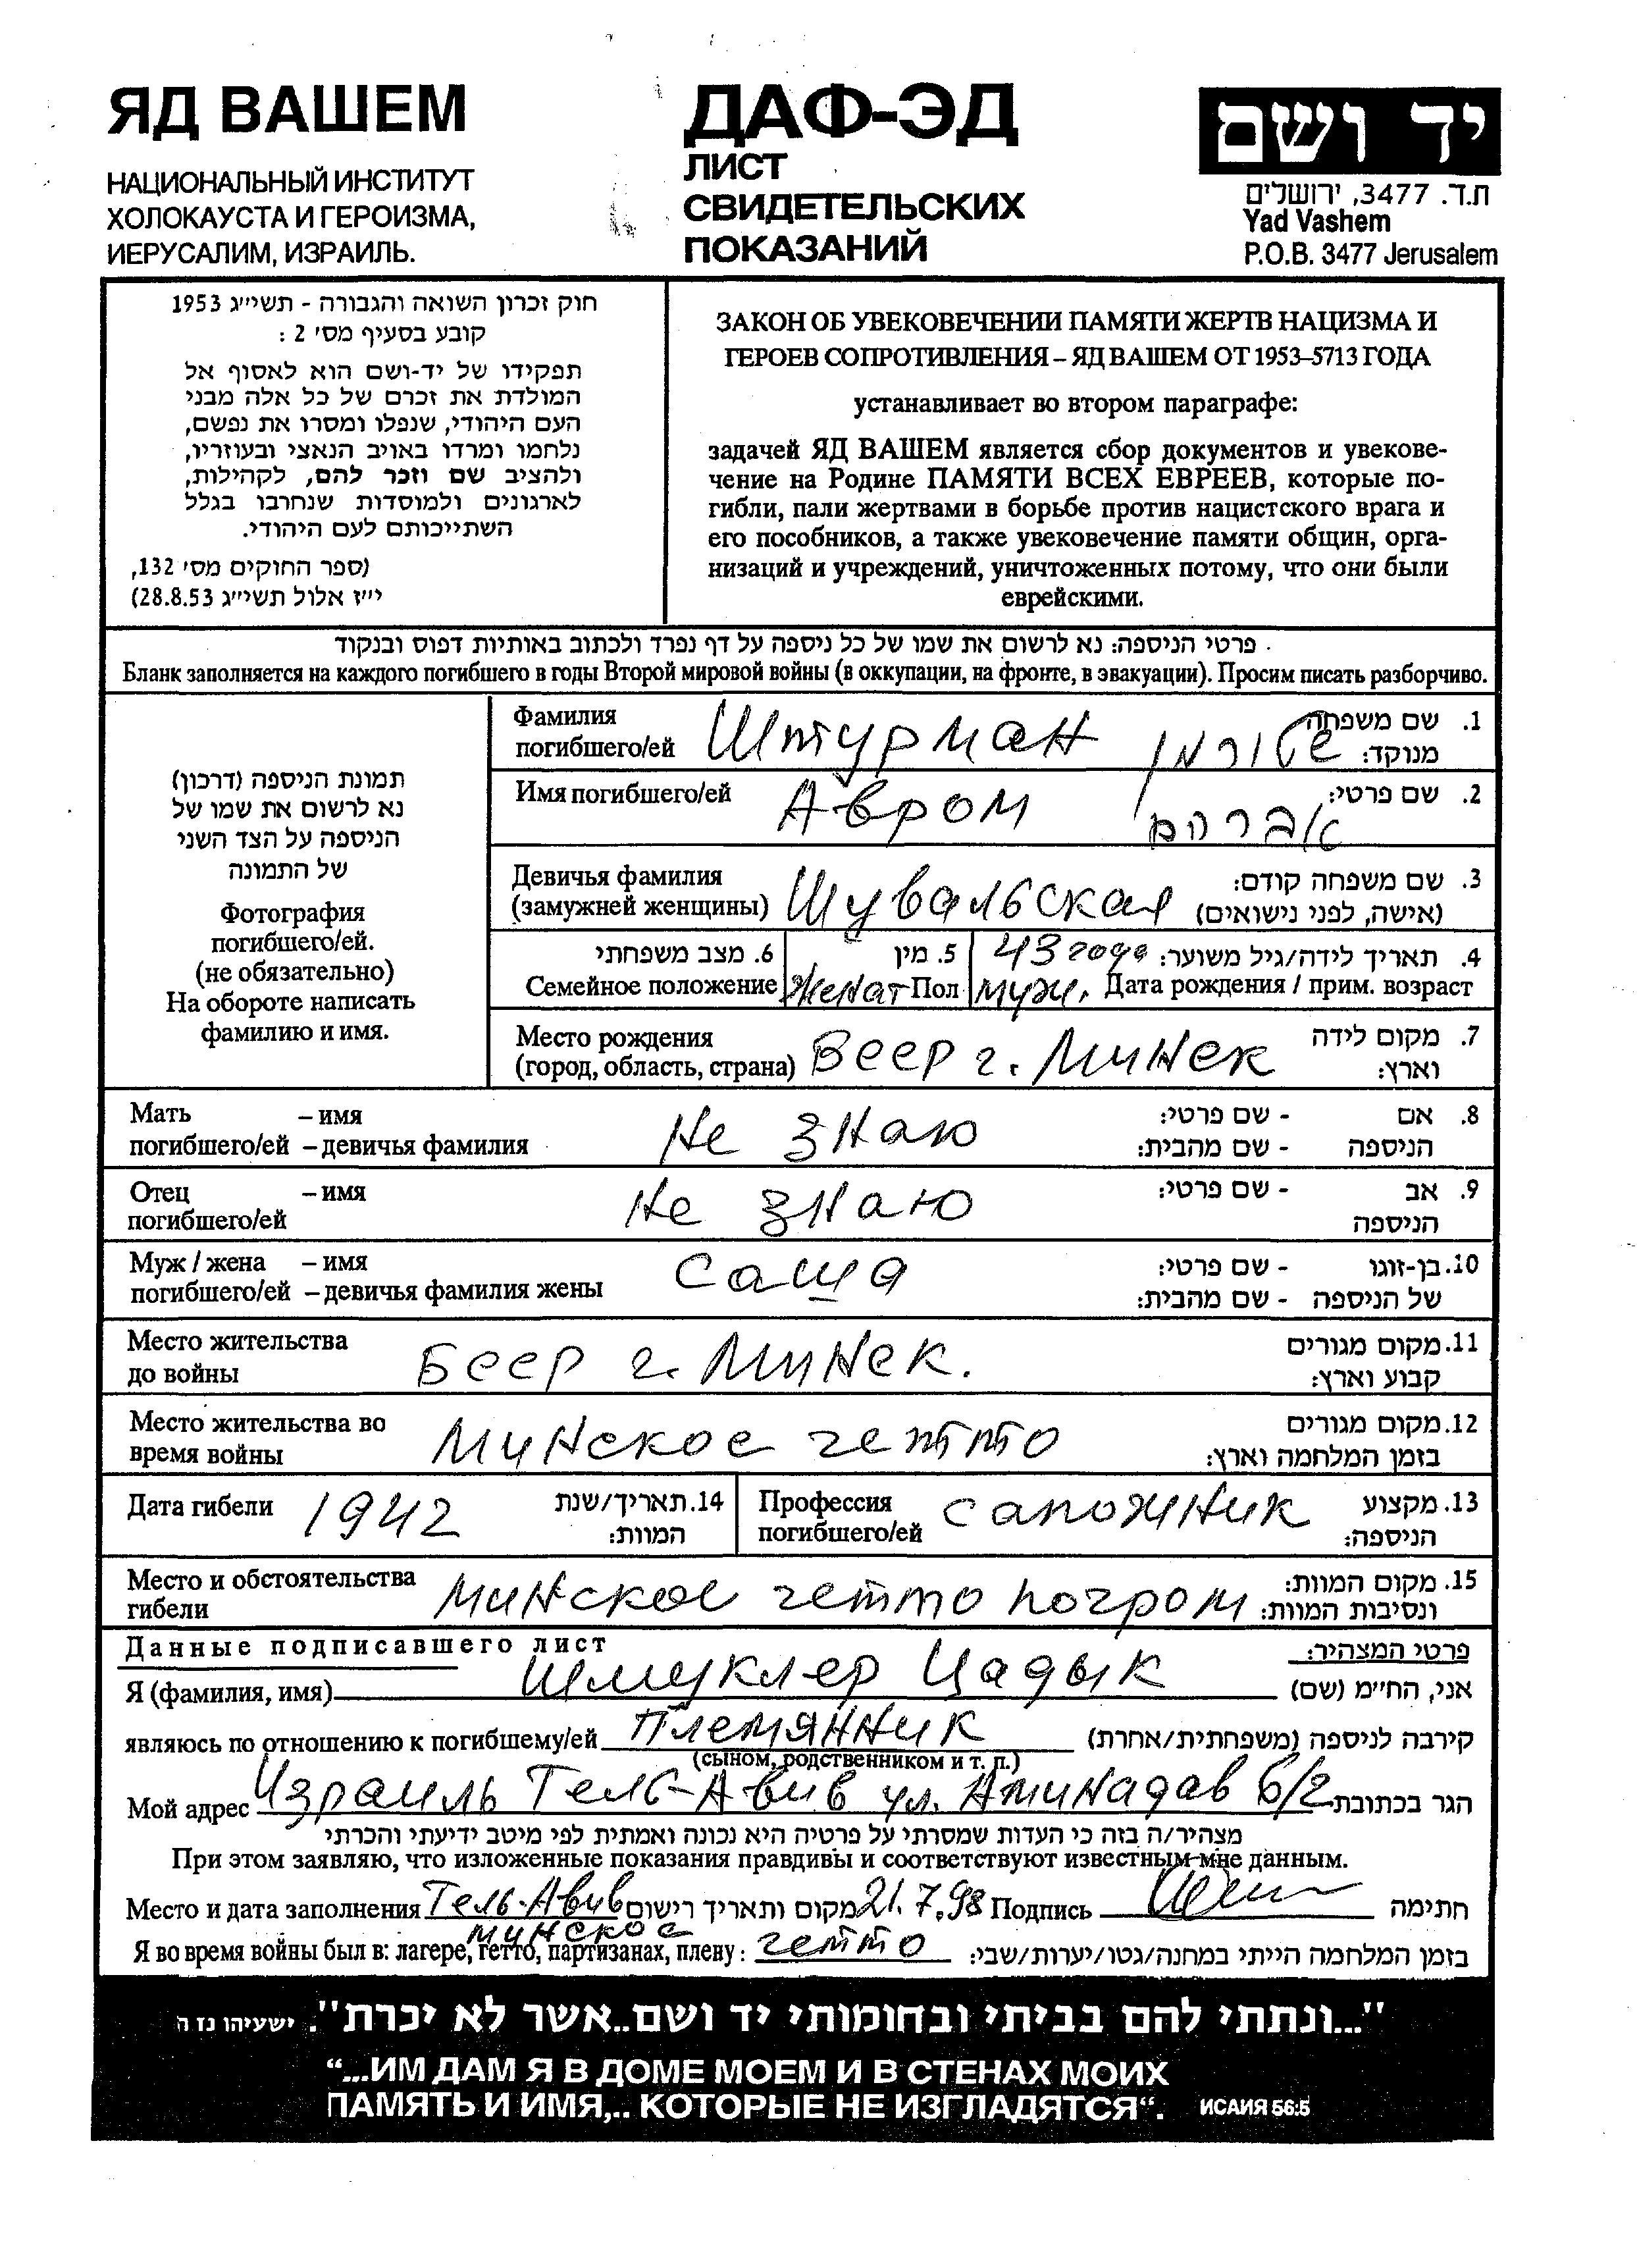 ЯД ВАШЕМ
НАЦИОНАЛЬНЫЙ ИНСТИТУТ
ХОЛОКАУСТА И ГЕРОИЗМА,
ИЕРУСАЛИМ, ИЗРАИЛЬ.
ДАФ-ЭД
ЛИСТ
СВИДЕТЕЛЬСКИХ
ПОКАЗАНИЙ
יד ושם
ת.ד. 3477, ירושלים
Yad Vashem
P.O.B. 3477 Jerusalem
חוק זכרון השואה והגבורה - תשי״ג 1953
קובע בסעיף מס׳ 2 :
תפקידו של יד-ושם הוא לאסוף אל
המולדת את זכרם של כל אלה מבני
העם היהודי, שנפלו ומסרו את נפשם,
נלחמו ומרדו באויב הנאצי ובעוזריו,
ולהציב שם וזכר להם, לקהילות,
לארגונים ולמוסדות שנחרבו בגלל
השתייכותם לעם היהודי.
(ספר החוקים מס׳ 132,
י״ז אלול תשי״ג 28.8.53)
ЗАКОН ОБ УВЕКОВЕЧЕНИИ ПАМЯТИ ЖЕРТВ НАЦИЗМА И
ГЕРОЕВ СОПРОТИВЛЕНИЯ – ЯД ВАШЕМ ОТ 1953–5713 ГОДА
устанавливает во втором параграфе:
задачей ЯД ВАШЕМ является сбор документов и увекове-
чение на Родине ПАМЯТИ ВСЕХ ЕВРЕЕВ, которые по-
гибли, пали жертвами в борьбе против нацистского врага и
его пособников, а также увековечение памяти общин, орга-
низаций и учреждений, уничтоженных потому, что они были
еврейскими.
פרטי הניספה: נא לרשום את שמו של כל ניספה על דף נפרד ולכתוב באותיות דפוס ובנקוד
Бланк заполняется на каждого погибшего в годы Второй мировой войны (в оккупации, на фронте, в эвакуации). Просим писать разборчиво.
תמונת הניספה (דרכון)
נא לרשום את שמו של
הניספה על הצד השני
של התמונה
Фотография
погибшего/ей.
(не обязательно)
На обороте написать
фамилию и имя.
Фамилия погибшего/ей Штурман שטורמן 1. שם משפחה מנוקד:
Имя погибшего/ей Авром אברהם 2. שם פרטי:
Девичья фамилия (замужней женщины) Шувальская 3. שם משפחה קודם: (אישה, לפני נישואים)
6. מצב משפחתי Семейное положение Женат 5. מין Пол муж. 43 года 4. תאריך לידה/גיל משוער: Дата рождения / прим. возраст
Место рождения (город, область, страна) Беер г. Минск 7. מקום לידה וארץ:
Мать – имя не знаю 8. אם - שם פרטי:
погибшего/ей – девичья фамилия הניספה - שם מהבית:
Отец – имя не знаю 9. אב - שם פרטי:
погибшего/ей הניספה
Муж / жена – имя Саша 10. בן-זוגו - שם פרטי:
погибшего/ей – девичья фамилия жены של הניספה - שם מהבית:
Место жительства до войны Беер г. Минск. 11. מקום מגורים קבוע וארץ:
Место жительства во время войны Минское гетто 12. מקום מגורים בזמן המלחמה וארץ:
Дата гибели 1942 14. תאריך/שנת המוות:
Профессия погибшего/ей сапожник 13. מקצוע הניספה:
Место и обстоятельства гибели минское гетто погром 15. מקום המוות: ונסיבות המוות:
Данные подписавшего лист פרטי המצהיר:
Я (фамилия, имя) Шмуклер Цадык אני, החי״מ (שם)
являюсь по отношению к погибшему/ей племянник קירבה לניספה (משפחתית/אחרת)
(сыном, родственником и т. п.)
Мой адрес Израиль Тель-Авив ул. Аминадав 6/2 הגר בכתובת
מצהיר/ה בזה כי העדות שמסרתי על פרטיה היא נכונה ואמתית לפי מיטב ידיעתי והכרתי
При этом заявляю, что изложенные показания правдивы и соответствуют известным мне данным.
Место и дата заполнения Тель-Авив מקום ותאריך רישום 21.7.98 Подпись חתימה
минское
Я во время войны был в: лагере, гетто, партизанах, плену: гетто בזמן המלחמה הייתי במחנה/גטו/יערות/שבי:
"...ונתתי להם בביתי ובחומותי יד ושם..אשר לא יכרת". ישעיהו נז ה
“...ИМ ДАМ Я В ДОМЕ МОЕМ И В СТЕНАХ МОИХ
ПАМЯТЬ И ИМЯ,.. КОТОРЫЕ НЕ ИЗГЛАДЯТСЯ“. ИСАИЯ 56:5